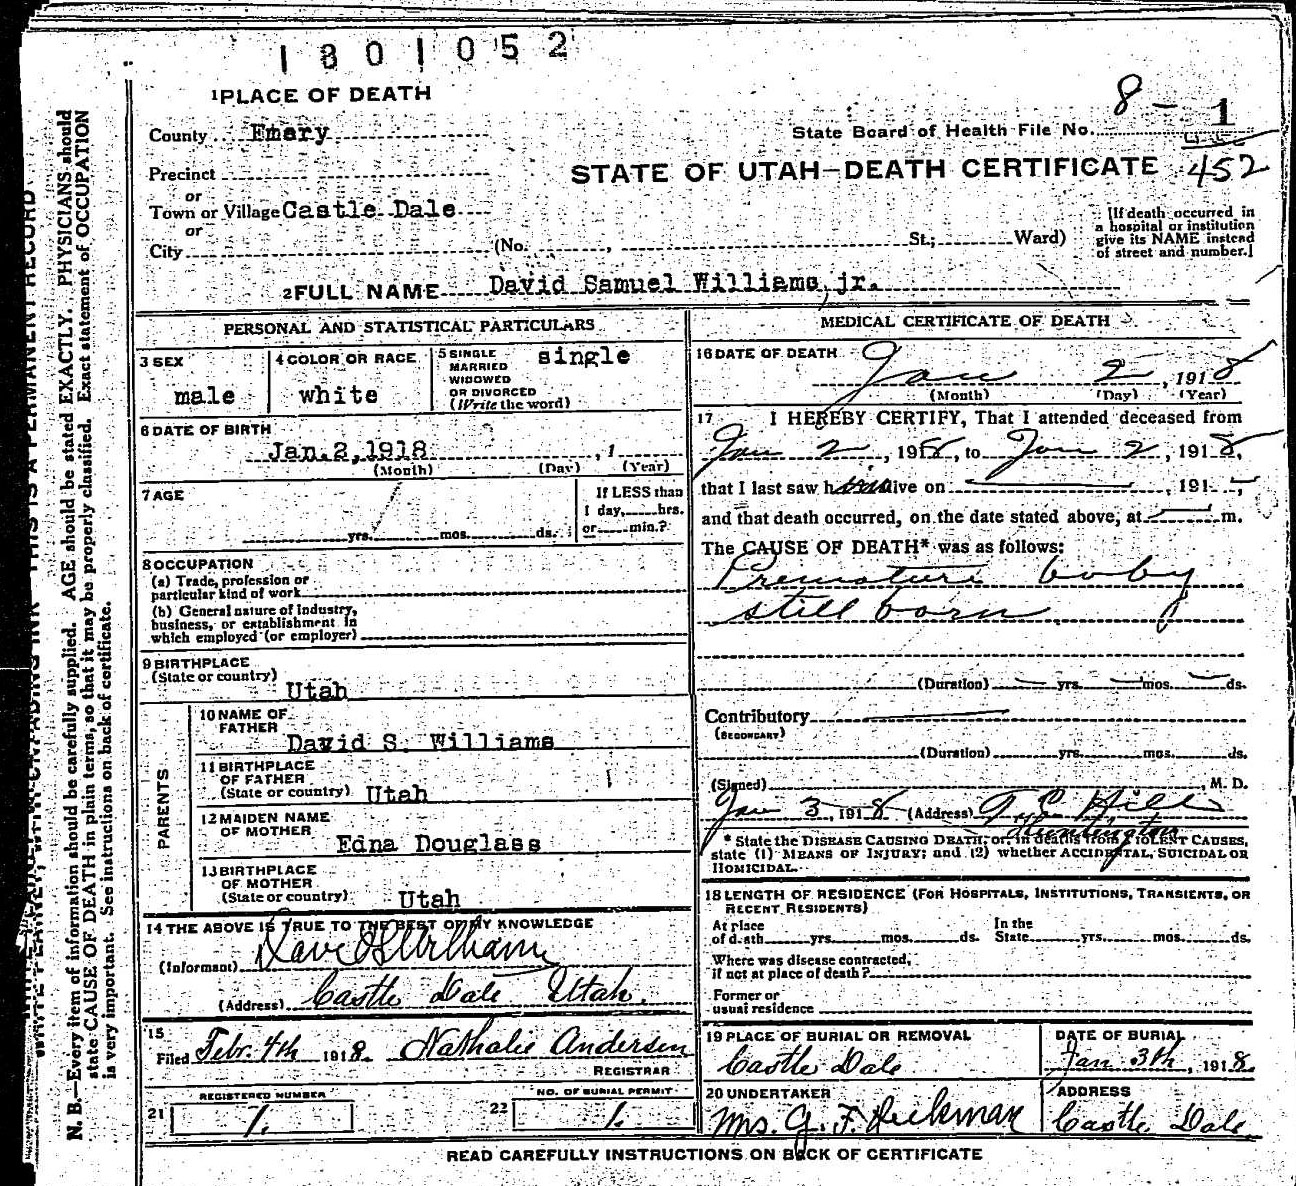 1801052
1 PLACE OF DEATH
County Emery
State Board of Health File No. 8-1
452
STATE OF UTAH—DEATH CERTIFICATE
Precinct
or
Town or Village Castle Dale
or
City (No. , St.; Ward)
[If death occurred in
a hospital or institution
give its NAME instead
of street and number.]
2 FULL NAME David Samuel Williams, jr.
PERSONAL AND STATISTICAL PARTICULARS
3 SEX
male
4 COLOR OR RACE
white
5 SINGLE
MARRIED
WIDOWED
OR DIVORCED
(Write the word)
single
6 DATE OF BIRTH
Jan.2,1918 , 1
(Month) (Day) (Year)
7 AGE
yrs. mos. ds.
If LESS than
1 day, hrs.
or min.?
8 OCCUPATION
(a) Trade, profession or
particular kind of work
(b) General nature of Industry,
business, or establishment in
which employed (or employer)
9 BIRTHPLACE
(State or country)
Utah
PARENTS
10 NAME OF
FATHER
David S. Williams
11 BIRTHPLACE
OF FATHER
(State or country) Utah
12 MAIDEN NAME
OF MOTHER
Edna Douglass
13 BIRTHPLACE
OF MOTHER
(State or country) Utah
14 THE ABOVE IS TRUE TO THE BEST OF MY KNOWLEDGE
(Informant) Dave S Williams
(Address) Castle Dale Utah.
15
Filed Febr. 4th 1918. Nathalie Andersen
REGISTRAR
21 REGISTERED NUMBER
1.
22 NO. OF BURIAL PERMIT
1.
MEDICAL CERTIFICATE OF DEATH
16 DATE OF DEATH
Jan 2, 1918
(Month) (Day) (Year)
17 I HEREBY CERTIFY, That I attended deceased from
Jan 2, 1918, to Jan 2, 1918,
that I last saw h alive on , 191
and that death occurred, on the date stated above, at m.
The CAUSE OF DEATH* was as follows:
Premature baby
still born
(Duration) yrs. mos. ds.
Contributory
(SECONDARY)
(Duration) yrs. mos. ds.
(Signed) , M. D.
Jan 3, 1918 (Address) T C Hill
Huntington
* State the DISEASE CAUSING DEATH; or, in deaths from VIOLENT CAUSES,
state (1) MEANS OF INJURY; and (2) whether ACCIDENTAL, SUICIDAL OR
HOMICIDAL.
18 LENGTH OF RESIDENCE (FOR HOSPITALS, INSTITUTIONS, TRANSIENTS, OR
RECENT RESIDENTS)
At place
of death yrs. mos. ds.
In the
State yrs. mos. ds.
Where was disease contracted,
if not at place of death?
Former or
usual residence
19 PLACE OF BURIAL OR REMOVAL
Castle Dale
DATE OF BURIAL
Jan 3th, 1918.
20 UNDERTAKER
Mrs. G. F. Dickman
ADDRESS
Castle Dale
READ CAREFULLY INSTRUCTIONS ON BACK OF CERTIFICATE
THIS IS A PERMANENT RECORD
N. B.—Every item of information should be carefully supplied. AGE should be stated EXACTLY. PHYSICIANS should
state CAUSE OF DEATH in plain terms, so that it may be properly classified. Exact statement of OCCUPATION
is very important. See instructions on back of certificate.